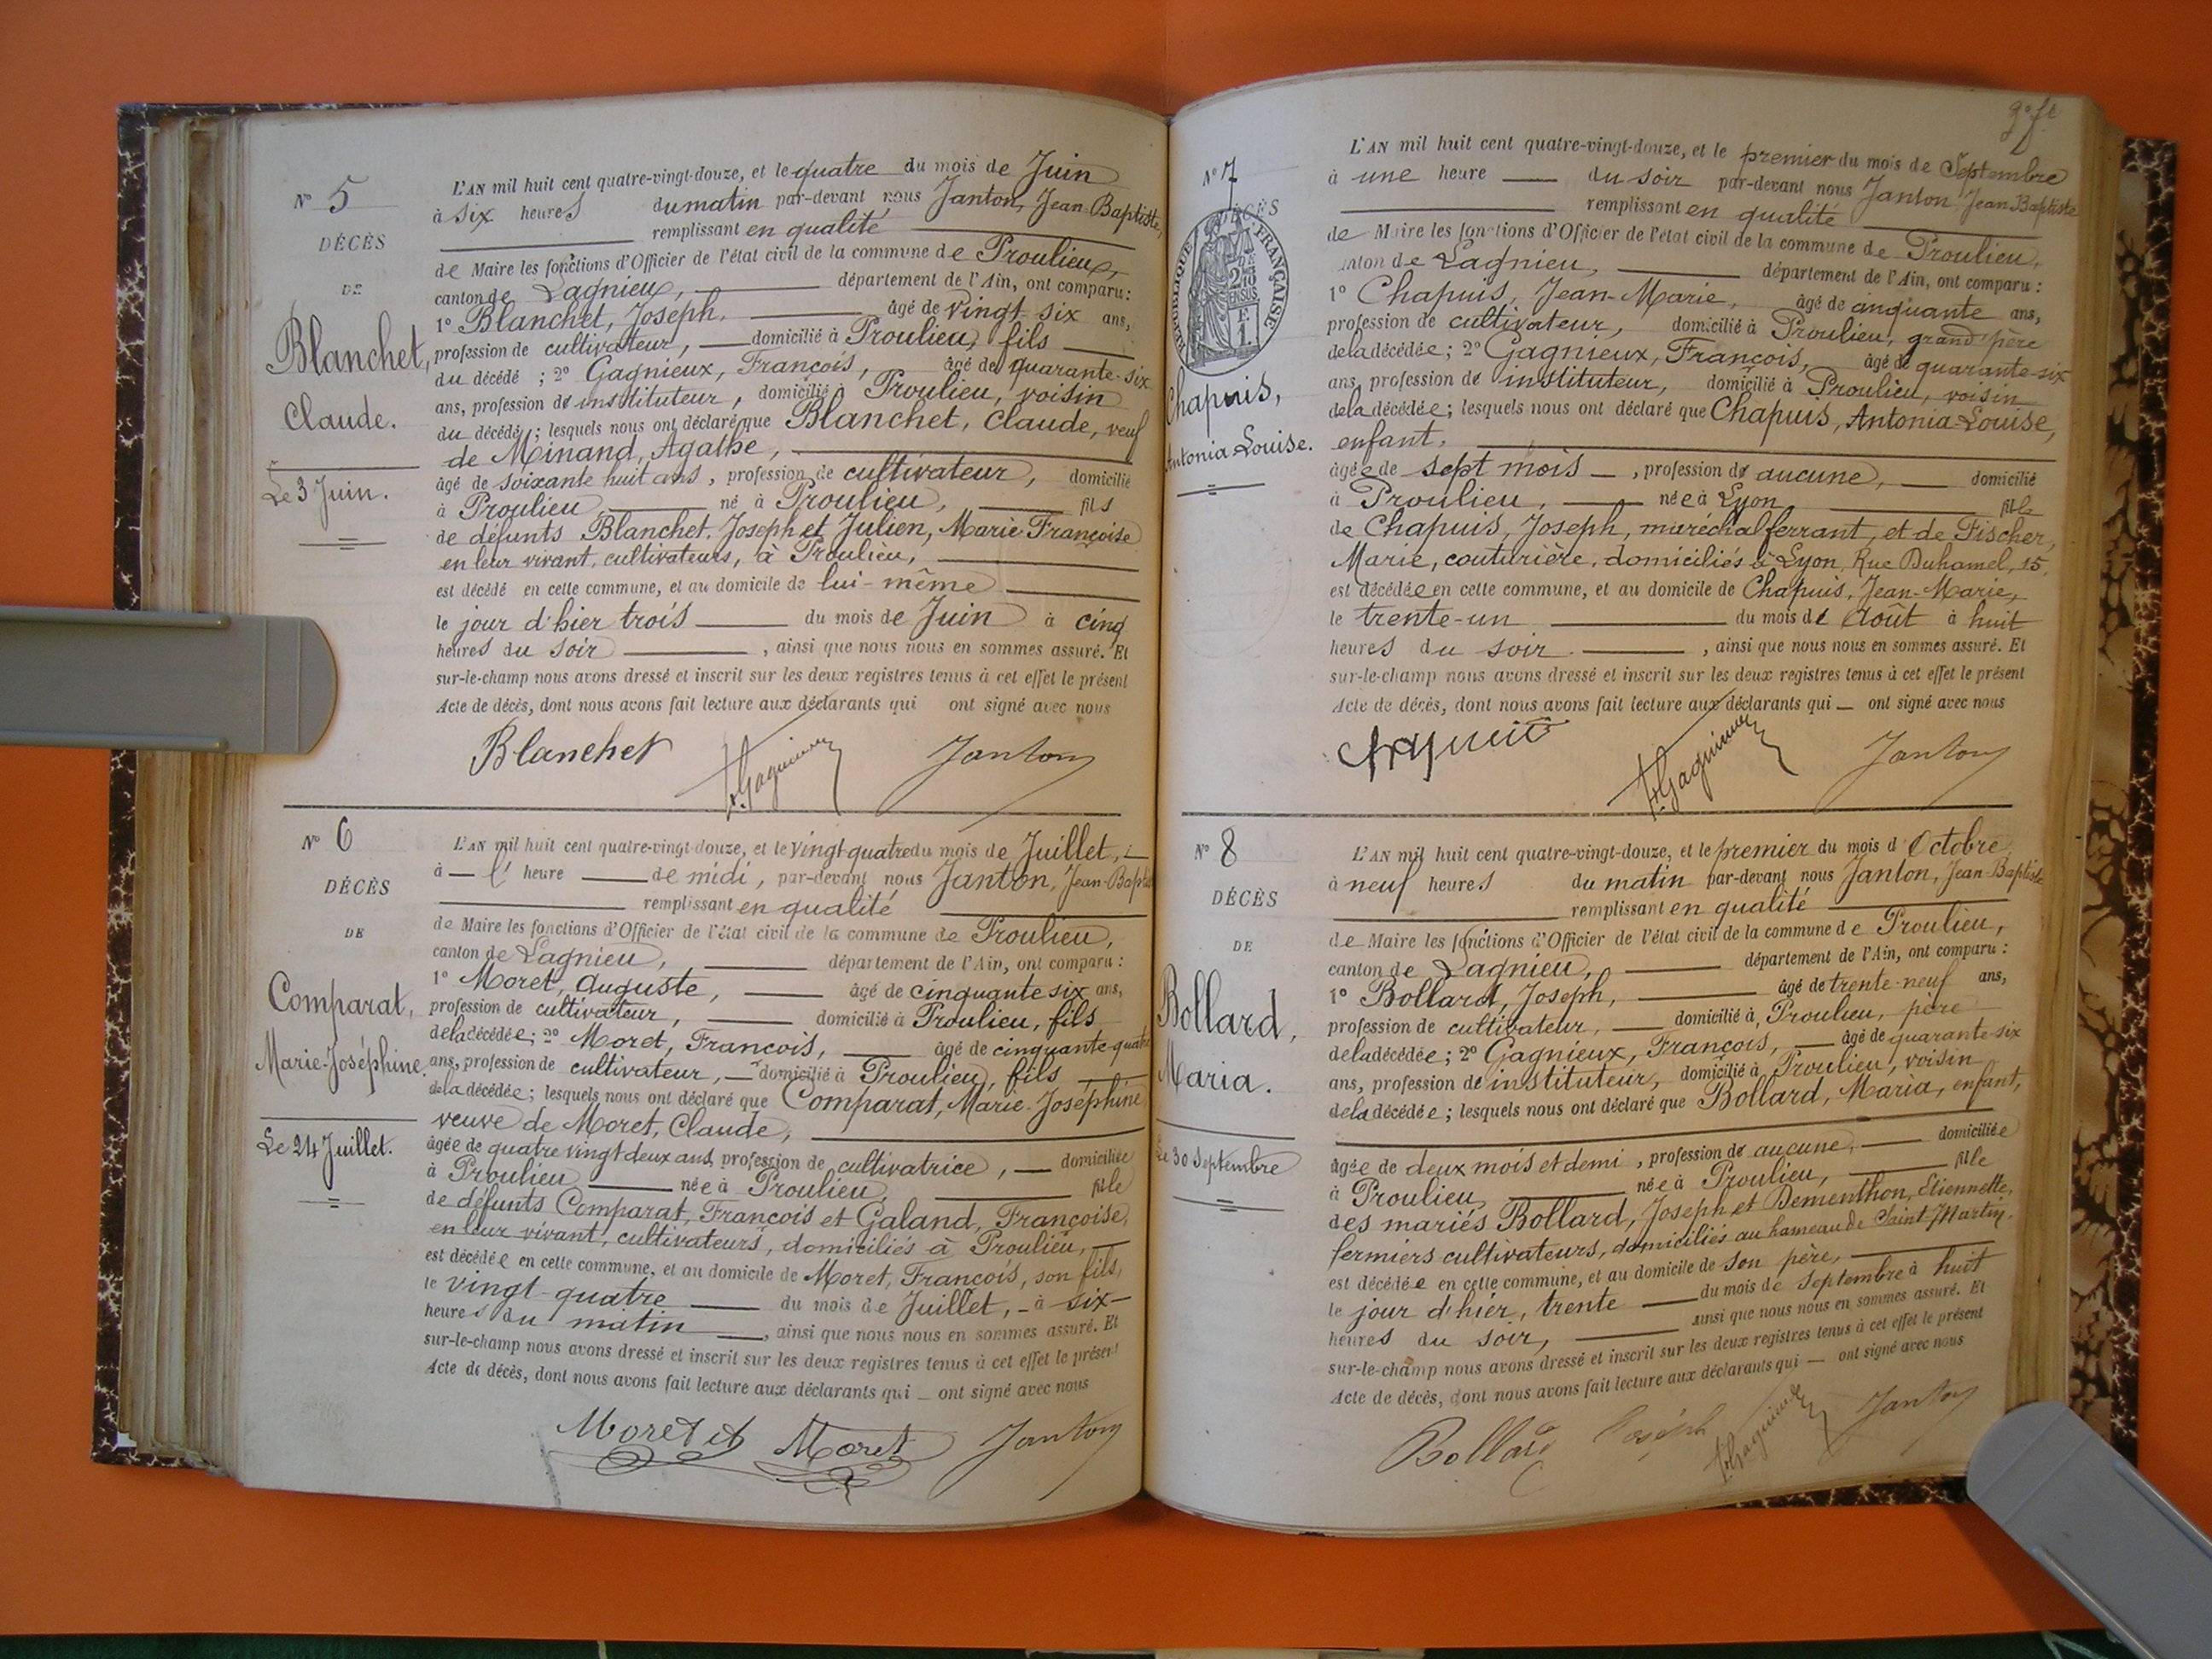 N° 5
DÉCÈS
DE
Blanchet,
Claude.
Le 3 Juin.
L'AN mil huit cent quatre-vingt-douze, et le quatre du mois de Juin
à six heures du matin par-devant nous Janton, Jean-Baptiste,
remplissant en qualité
de Maire les fonctions d'Officier de l'état civil de la commune de Proulieu,
canton de Lagnieu, département de l'Ain, ont comparu :
1° Blanchet, Joseph, âgé de vingt-six ans,
profession de cultivateur, domicilié à Proulieu, fils
du décédé ; 2° Gagnieux, François, âgé de quarante-six
ans, profession de instituteur, domicilié à Proulieu, voisin
du décédé ; lesquels nous ont déclaré que Blanchet, Claude, veuf
de Minand, Agathe,
âgé de soixante huit ans, profession de cultivateur, domicilié
à Proulieu né à Proulieu, fils
de défunts Blanchet, Joseph et Julien, Marie Françoise
en leur vivant, cultivateurs, à Proulieu,
est décédé en cette commune, et au domicile de lui-même
le jour d'hier trois du mois de Juin à cinq
heures du soir, ainsi que nous nous en sommes assuré. Et
sur-le-champ nous avons dressé et inscrit sur les deux registres tenus à cet effet le présent
Acte de décès, dont nous avons fait lecture aux déclarants qui ont signé avec nous
Blanchet F. Gagnieux Janton
N° 6
DÉCÈS
DE
Comparat,
Marie-Joséphine.
Le 24 Juillet.
L'AN mil huit cent quatre-vingt-douze, et le vingt-quatre du mois de Juillet,
à l' heure de midi, par-devant nous Janton, Jean-Baptiste
remplissant en qualité
de Maire les fonctions d'Officier de l'état civil de la commune de Proulieu,
canton de Lagnieu, département de l'Ain, ont comparu :
1° Moret, Auguste, âgé de cinquante six ans,
profession de cultivateur, domicilié à Proulieu, fils
de la décédée ; 2° Moret, François, âgé de cinquante-quatre
ans, profession de cultivateur, domicilié à Proulieu, fils
de la décédée ; lesquels nous ont déclaré que Comparat, Marie-Joséphine
veuve de Moret, Claude,
âgée de quatre vingt deux ans, profession de cultivatrice, domiciliée
à Proulieu née à Proulieu, fille
de défunts Comparat, François et Galand, Françoise,
en leur vivant, cultivateurs, domiciliés à Proulieu,
est décédée en cette commune, et au domicile de Moret, François, son fils,
le vingt-quatre du mois de Juillet, à six
heures du matin, ainsi que nous nous en sommes assuré. Et
sur-le-champ nous avons dressé et inscrit sur les deux registres tenus à cet effet le présent
Acte de décès, dont nous avons fait lecture aux déclarants qui ont signé avec nous
Moret Moret Janton
N° 7
DÉCÈS
RÉPUBLIQUE FRANÇAISE
Chapuis,
Antonia-Louise.
L'AN mil huit cent quatre-vingt-douze, et le premier du mois de Septembre
à une heure du soir par-devant nous Janton Jean Baptiste
remplissant en qualité
de Maire les fonctions d'Officier de l'état civil de la commune de Proulieu,
canton de Lagnieu, département de l'Ain, ont comparu :
1° Chapuis, Jean-Marie, âgé de cinquante ans,
profession de cultivateur, domicilié à Proulieu, grand père
de la décédée ; 2° Gagnieux, François, âgé de quarante-six
ans, profession de instituteur, domicilié à Proulieu, voisin
de la décédée ; lesquels nous ont déclaré que Chapuis, Antonia-Louise,
enfant,
âgée de sept mois, profession de aucune, domicilié
à Proulieu, née à Lyon fille
de Chapuis, Joseph, maréchal ferrant, et de Fischer,
Marie, couturière, domiciliés à Lyon, Rue Duhamel, 15,
est décédée en cette commune, et au domicile de Chapuis, Jean-Marie,
le trente-un du mois de Août à huit
heures du soir, ainsi que nous nous en sommes assuré. Et
sur-le-champ nous avons dressé et inscrit sur les deux registres tenus à cet effet le présent
Acte de décès, dont nous avons fait lecture aux déclarants qui ont signé avec nous
Chapuis F. Gagnieux Janton
N° 8
DÉCÈS
DE
Bollard,
Maria.
Le 30 Septembre
L'AN mil huit cent quatre-vingt-douze, et le premier du mois d'Octobre
à neuf heures du matin par-devant nous Janton, Jean-Baptiste
remplissant en qualité
de Maire les fonctions d'Officier de l'état civil de la commune de Proulieu,
canton de Lagnieu, département de l'Ain, ont comparu :
1° Bollard, Joseph, âgé de trente-neuf ans,
profession de cultivateur, domicilié à Proulieu, père
de la décédée ; 2° Gagnieux, François, âgé de quarante-six
ans, profession de instituteur, domicilié à Proulieu, voisin
de la décédée ; lesquels nous ont déclaré que Bollard, Maria, enfant,
âgée de deux mois et demi, profession de aucune, domiciliée
à Proulieu, née à Proulieu, fille
des mariés Bollard, Joseph et Dementhon, Etiennette,
fermiers cultivateurs, domiciliés au hameau de Saint-Martin,
est décédée en cette commune, et au domicile de son père,
le jour d'hier, trente du mois de septembre à huit
heures du soir, ainsi que nous nous en sommes assuré. Et
sur-le-champ nous avons dressé et inscrit sur les deux registres tenus à cet effet le présent
Acte de décès, dont nous avons fait lecture aux déclarants qui ont signé avec nous
Bollard Joseph F. Gagnieux Janton